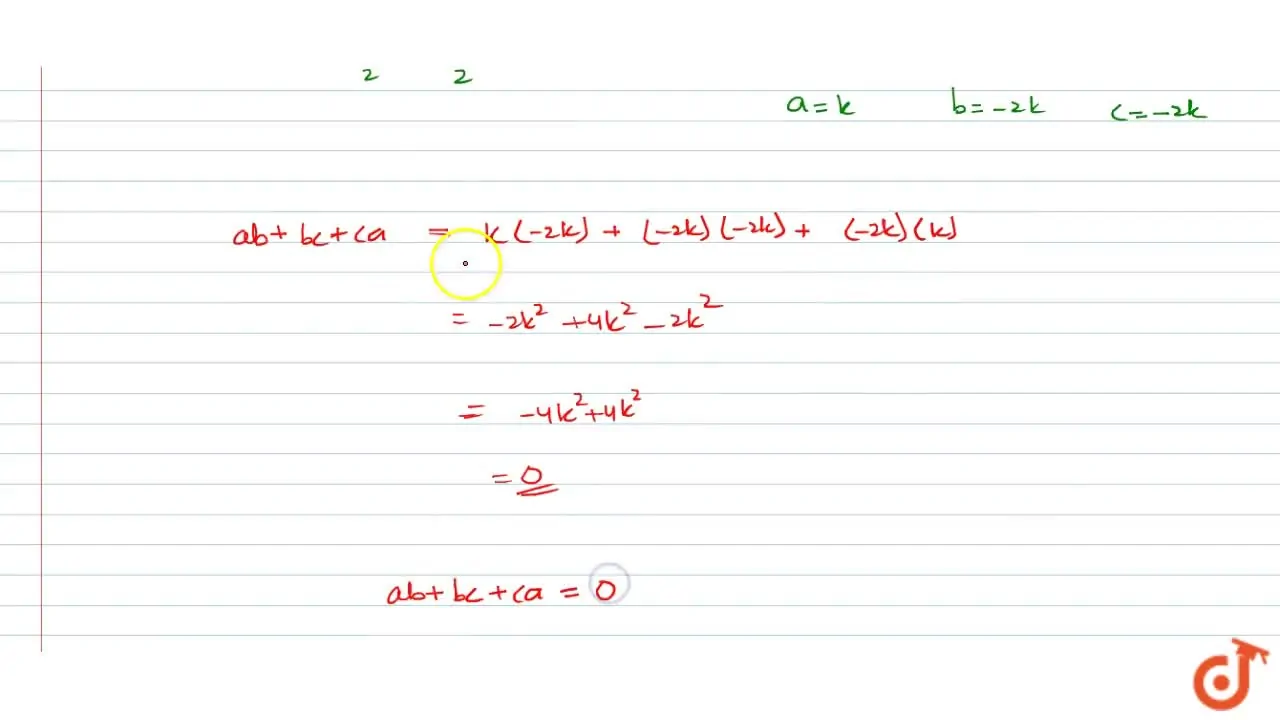 2 2
a = k b = -2k c = -2k
ab + bc + ca = k(-2k) + (-2k)(-2k) + (-2k)(k)
= -2k² + 4k² - 2k²
= -4k² + 4k²
= 0
ab + bc + ca = 0